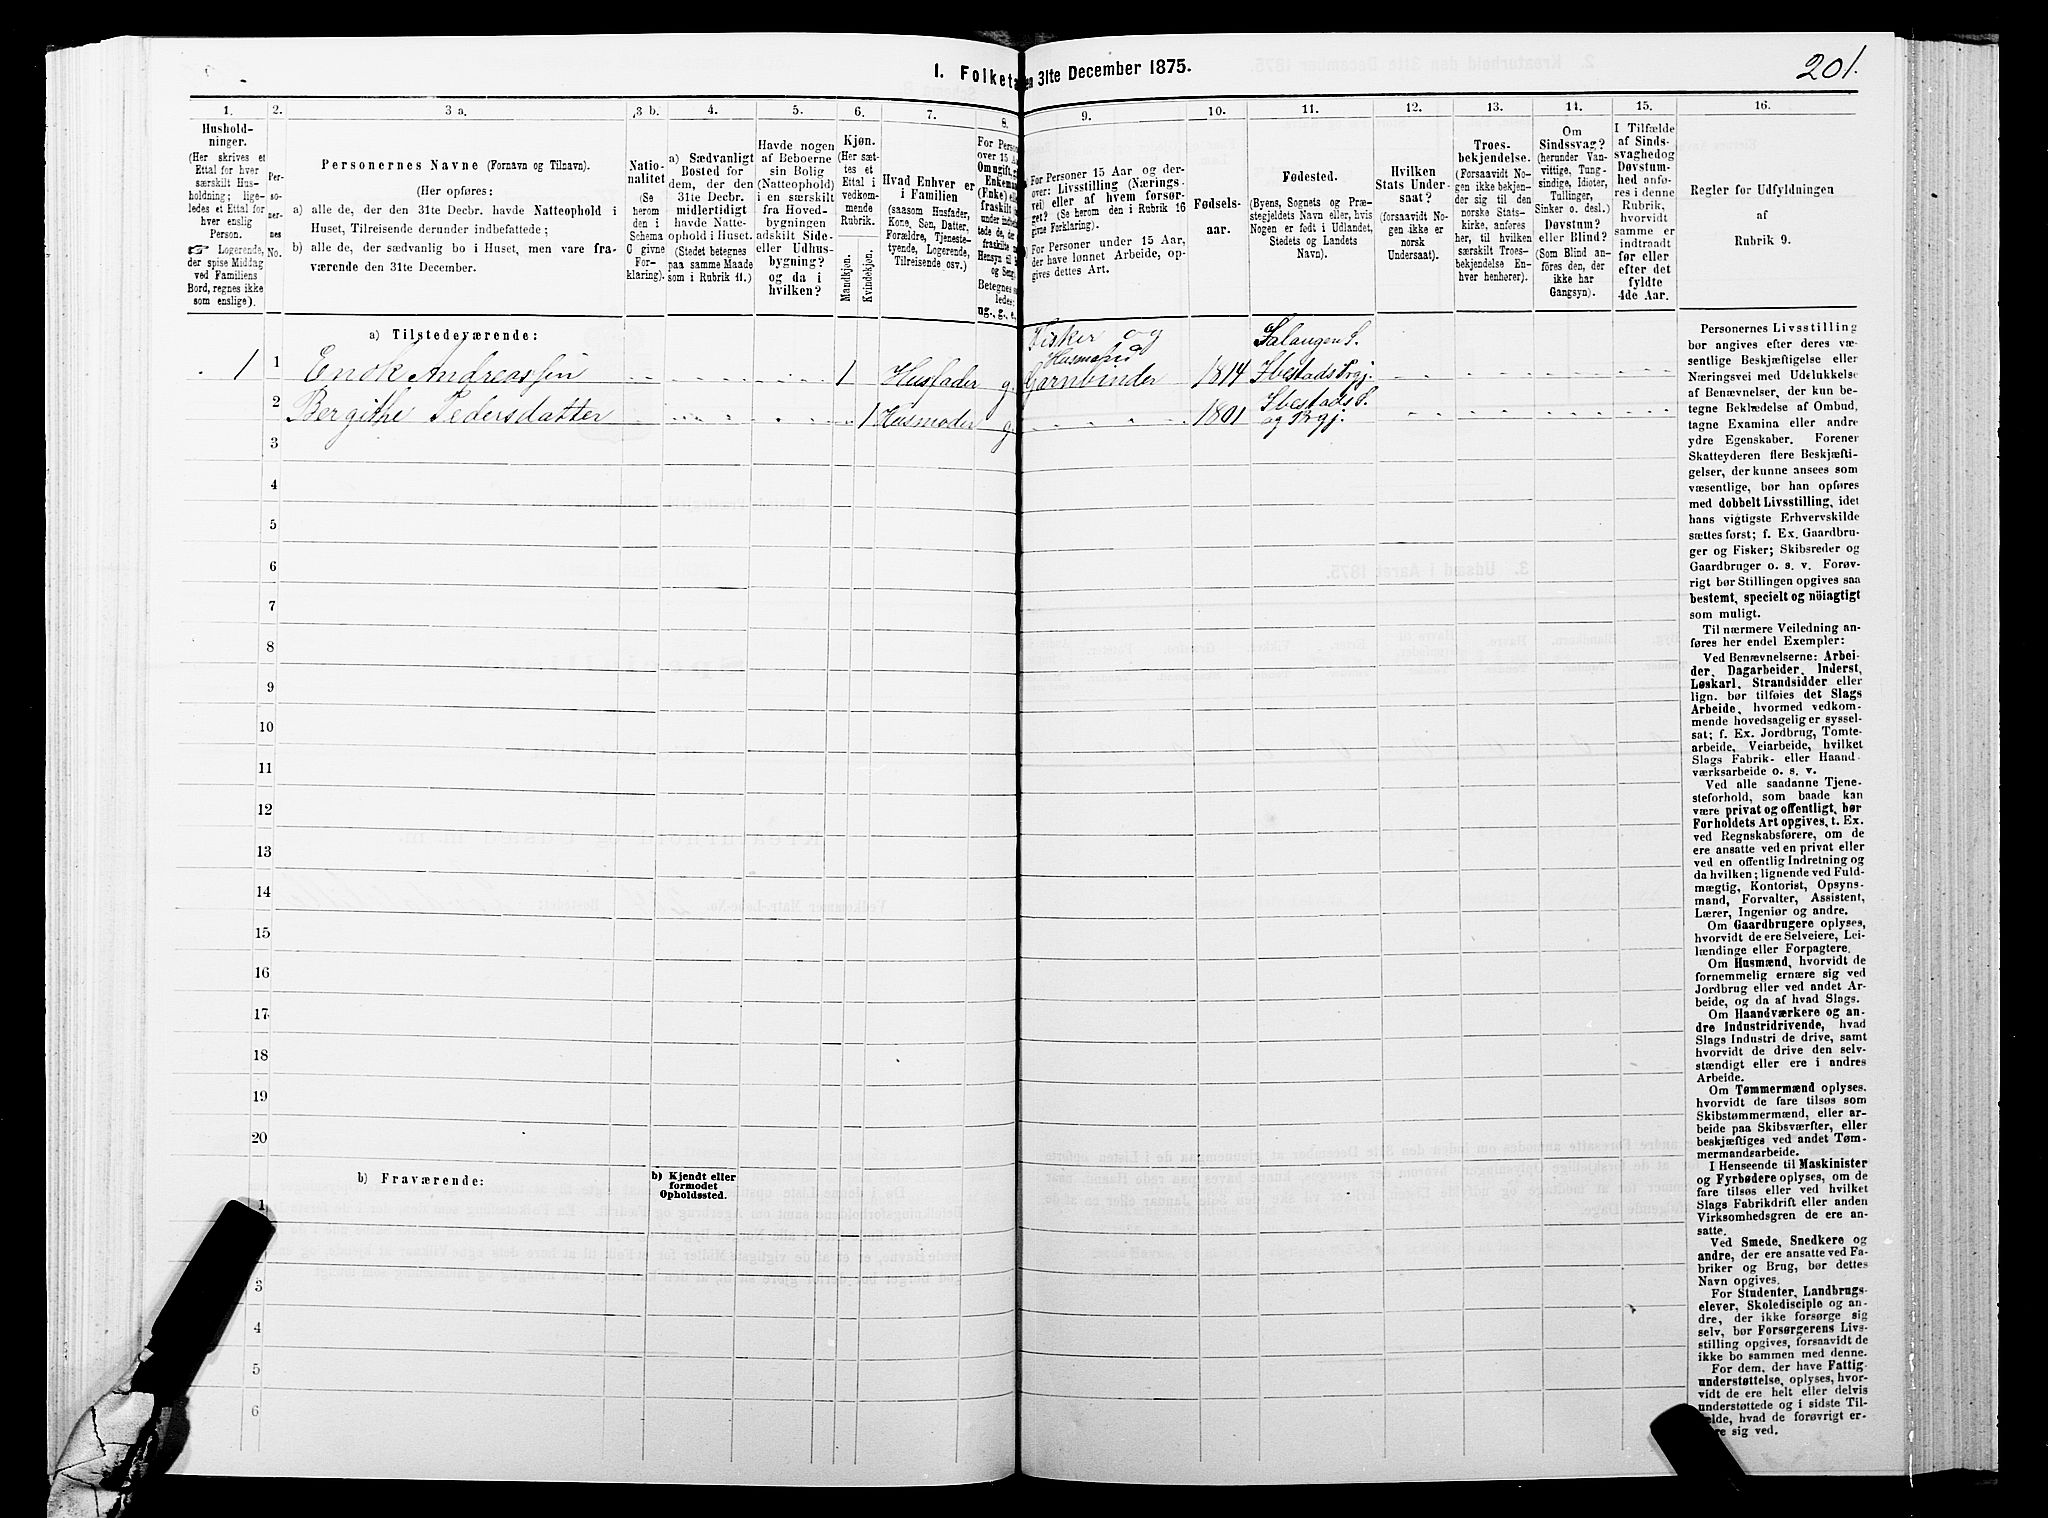 201.
1. Folketa en 31te December 1875.
1. 2. 3 a. 3 b. 4. 5. 6. 7. 8. 9. 10. 11. 12. 13. 14. 15. 16.
Hushold-
ninger.
(Her skrives et
Ettal for hver
særskilt Hus-
holdning; lige-
ledes et Ettal for
hver enslig
Person.
☞ Logerende,
der spise Middag
ved Familiens
Bord, regnes ikke
som enslige).
Per-
so-
ner-
nes
No.
Personernes Navne (Fornavn og Tilnavn).
(Her opføres:
a) alle de, der den 31te Decbr. havde Natteophold i
Huset, Tilreisende derunder indbefattede;
b) alle de, der sædvanlig bo i Huset, men vare fra-
værende den 31te December.
Natio-
nalitet
(Se
herom
den i
Schema
O givne
For-
klaring).
a) Sædvanligt
Bosted for
dem, der den
31te Decbr.
midlertidigt
havde Natte-
ophold i Huset.
(Stedet betegnes
paa samme Maade
som i Rubrik 11.)
Havde nogen
af Beboerne
sin Bolig
(Natteophold)
i en særskilt
fra Hoved-
bygningen
adskilt Side-
eller Udhus-
bygning?
og da i
hvilken?
Kjøn.
(Her sæt-
tes et
Ettal i
vedkom-
mende
Rubrik.
Mandkjøn.
Kvindekjøn.
Hvad Enhver er
i Familien
(saasom Husfader,
Kone, Søn, Datter,
Forældre, Tjeneste-
tyende, Logerende,
Tilreisende osv.)
For Person
over 15 Aa
Om ugift, g
Enkeman
(Enke) el
fraskilt
Betegnes s
ledes:
ug., g., e.,
For Personer 15 Aar og der-
over: Livsstilling (Nærings-
vei) eller af hvem forsør-
get? (Se herom den i Rubrik 16
givne Forklaring).
For Personer under 15 Aar,
der have lønnet Arbeide, op-
gives dettes Art.
Fødsels-
aar.
Fødested.
(Byens, Sognets og Præ-
stegjeldets Navn eller, hvis
Nogen er født i Udlandet,
Stedets og Landets
Navn).
Hvilken
Stats Under-
saat?
(forsaavidt No-
gen ikke er
norsk
Undersaat).
Troes-
bekjendelse.
(Forsaavidt No-
gen ikke bekjen-
der sig til den
norske Stats-
kirke, anføres
her, til hvilken
særskilt Troes-
bekjendelse En-
hver henhører).
Om
Sindssvag?
(herunder Van-
vittige, Tung-
sindige, Idioter,
Tullinger,
Sinker o. desl.)
Døvstum?
eller Blind?
(Som Blind an-
føres den, der
ikke har
Gangsyn).
I Tilfælde
af Sinds-
svaghed og
Døvstum-
hed anfø-
res i denne
Rubrik,
hvorvidt
samme er
indtraadt
før eller
efter det
fyldte
4de Aar.
Regler for Udfyldningen
af
Rubrik 9.
a) Tilstedeværende:
Fisker og Husmand Salangen S.
1 1 Enok Andreassen 1 Husfader g. Garnbinder 1814 Ibestads Prgj.
2 Bergithe Pedersdatter 1 Husmoder g. 1801 Ibestads S.
og Prgj.
3
4
5
6
7
8
9
10
11
12
13
14
15
16
17
18
19
20
b) Fraværende:
b) Kjendt eller
formodet
Opholdssted.
1
3
4
5
6
Personernes Livsstilling
bør angives efter deres væ-
sentlige Beskjæftigelse eller
Næringsvei med Udelukkelse
af Benævnelser, der kun be-
tegne Beklædelse af Ombud,
tagne Examina eller andre
ydre Egenskaber. Forener
Skatteyderen flere Beskjæfti-
gelser, der kunne ansees som
væsentlige, bør han opføres
med dobbelt Livsstilling, idet
hans vigtigste Erhvervskilde
sættes først; f. Ex. Gaardbru-
ger og Fisker; Skibsreder og
Gaardbruger o. s. v. Forøv-
rigt bør Stillingen opgives saa
bestemt, specielt og nøiagtigt
som muligt.
Til nærmere Veiledning an-
føres her endel Exempler:
Ved Benævnelserne: Arbei-
der, Dagarbeider, Inderst,
Løskarl, Strandsidder eller
lign. bør tilføies det Slags
Arbeide, hvormed vedkom-
mende hovedsagelig er syssel-
sat; f. Ex. Jordbrug, Tomte-
arbeide, Veiarbeide, hvilket
Slags Fabrik- eller Haand-
værksarbeide o. s. v.
Ved alle saadanne Tjene-
steforhold, som baade kan
være privat og offentligt, bør
Forholdets Art opgives, t. Ex.
ved Regnskabsførere, om de
ere ansatte ved en privat eller
ved en offentlig Indretning og
da hvilken; lignende ved Fuld-
mægtig, Kontorist, Opsyns-
mand, Forvalter, Assistent,
Lærer, Ingeniør og andre.
Om Gaardbrugere oplyses,
hvorvidt de ere Selveiere, Lei-
lændinge eller Forpagtere.
Om Husmænd, hvorvidt de
fornemmelig ernære sig ved
Jordbrug eller ved andet Ar-
beide, og da af hvad Slags.
Om Haandværkere og an-
dre Industridrivende, hvad
Slags Industri de drive, samt
hvorvidt de drive den selv-
stændigt eller ere i andres
Arbeide.
Om Tømmermænd oplyses,
hvorvidt de fare tilsøs som
Skibstømmermænd, eller ar-
beide paa Skibsværfter, eller
beskjæftiges ved andet Tøm-
mermandsarbeide.
I Henseende til Maskinister
og Fyrbødere oplyses, om de
fare tilsøs eller ved hvilket
Slags Fabrikdrift eller anden
Virksomhedsgren de ere an-
satte.
Ved Smede, Snedkere og
andre, der ere ansatte ved Fa-
briker og Brug, bør dettes
Navn opgives.
For Studenter, Landbrugs-
elever, Skoledisciple og an-
dre, der ikke forsørge sig
selv, bør Forsørgerens Livs-
stilling opgives, forsaavidt de
ikke bo sammen med denne.
For dem, der have Fattig-
understøttelse, oplyses, hvor-
vidt de ere helt eller delvis
understøttede og i sidste Til-
lde, hvad de forøvrigt er-
re sig ved.